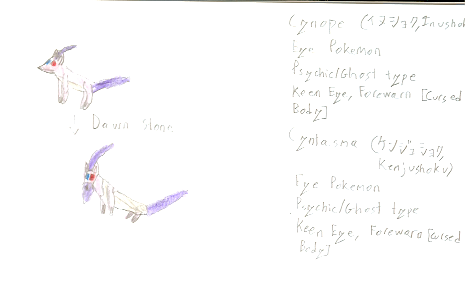 Cynope (イヌショク, Inushok
Eye Pokemon
Psychic/Ghost type
Keen Eye, Forewarn [Cursed
Body]
↓, Dawn Stone
Cyntasma (ケンジュショク,
Kenjushoku)
Eye Pokemon
Psychic/Ghost type
Keen Eye, Forewarn [Cursed
Body]